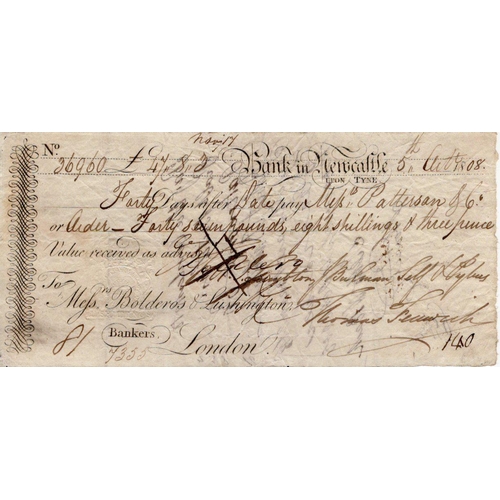 Nov 17
No. 36960 £47.8.3 Bank in Newcastle 5th Octr 1808.
UPON TYNE
Forty Days after Date pay Messrs. Patterson & Co.
or Order – Forty seven pounds, eight shillings & three pence
Value received as advised
To Bulman, Self &
Messrs. Boldero's & Lushington Thomas Fenwick
81 Bankers London 140
7355